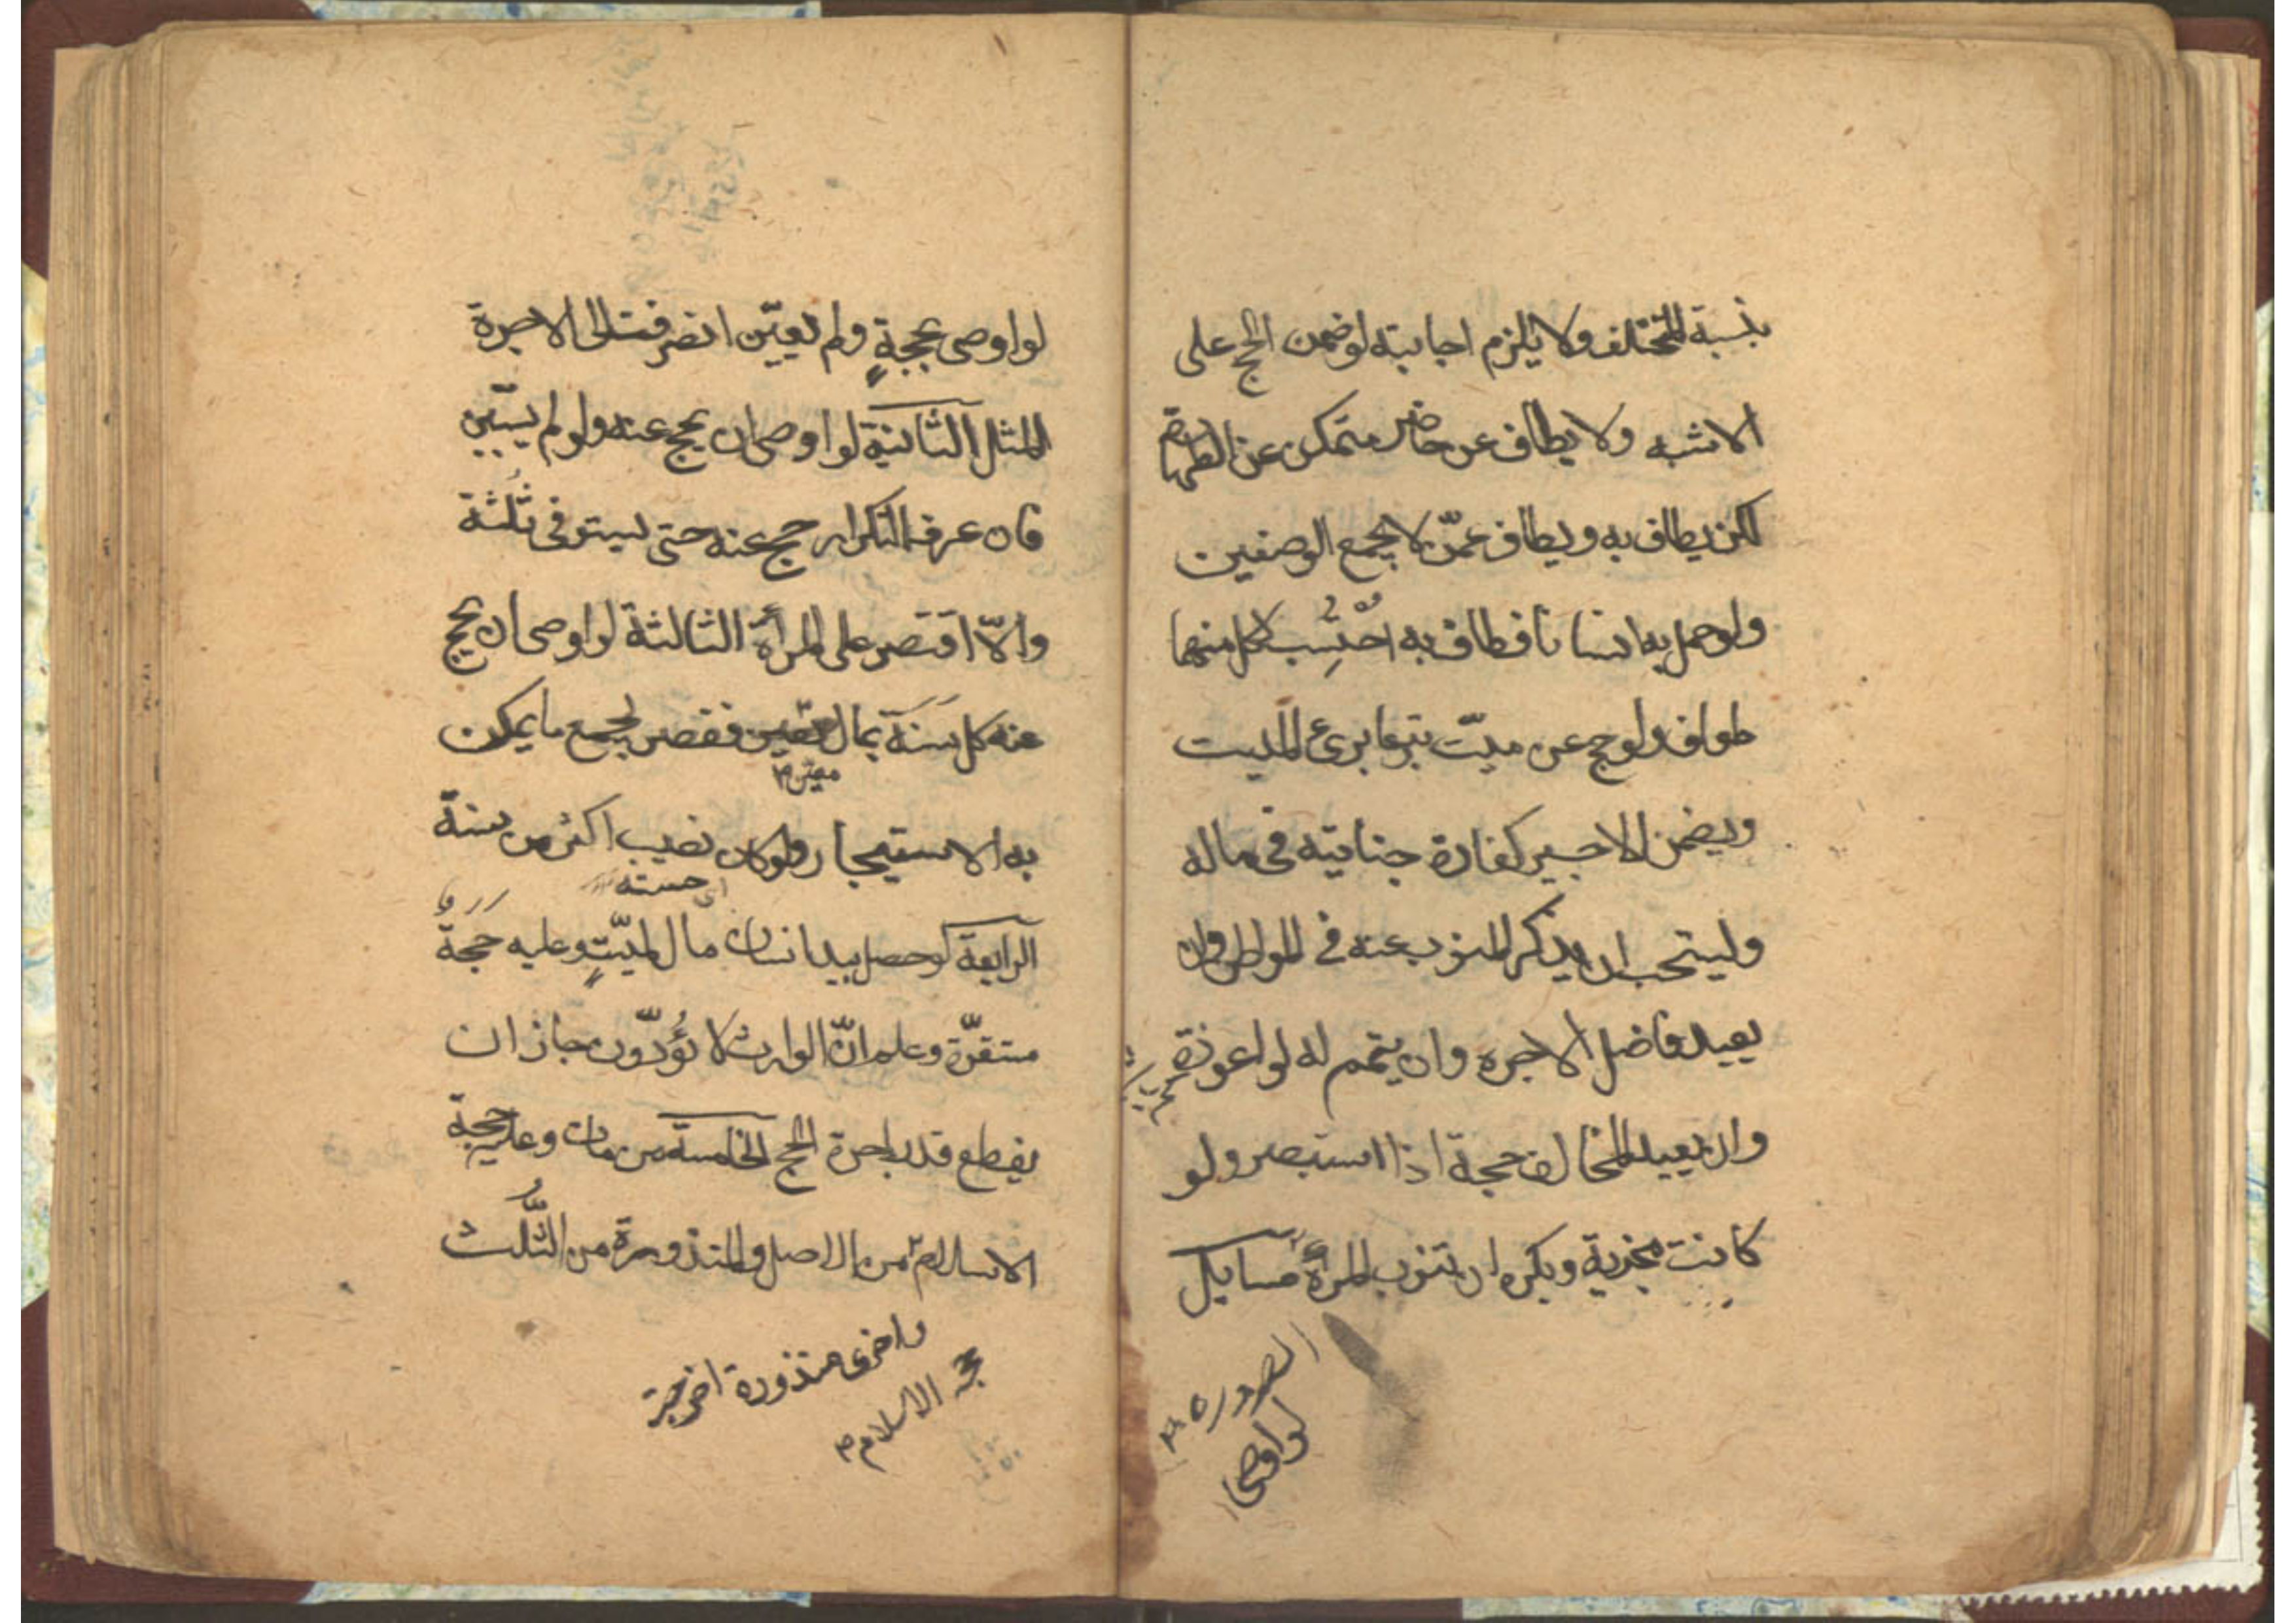 بنسبة المتخلف ولا يلزم اجابته لو ضمن الحج على
الاشبه ولا يطاف عن حاضر متمكن عن الطهارة
لكن يطاف به ويطاف عمّن لا يجمع الوصفين
ولو حمل به انسانا فطاف به احتسب لكل منهما
طواف ولو حج عن ميّت تبرعا برئ الميت
ويضمن الاجير كفارة جنايته فى ماله
وليتحب ان يذكر المنوب عنه فى المواطن وان
يعيد فاضل الاجره وان يتمم له لو اعوزته
وان يعيد المخالف حجة اذا استبصر ولو
كانت مجزية ويكره ان تنوب المرأة مسايل
الصرورة
لو اوصى
لو اوصى بحجةٍ ولم تعيّن انصرفت الى الاجرة
المثل الثانية لو اوصى ان يحج عنه ولو لم يبيّن
فان عرف التكرار حج عنه حتى يستوفى ثلثة
والّا اقتصر على المرأة الثالثة لو اوصى ان يحج
عنه كل سنة بمال معين فقصر لجمع ما يمكن
معين
به الاستيجار ولو كان نصيب اكثر من سنة
الرابعة لو حصل بيد انسان مال لميّتٍ وعليه حجة
مستقرّة وعلم انّ الوارث لا يؤدّون جاز ان
يقطع قدر اجرة الحج الخامسة من مات وعليه حجة
الاسلام من الاصل والمنذورة من الثُّلث
واخرى منذورة اخرجت
حجة الاسلام